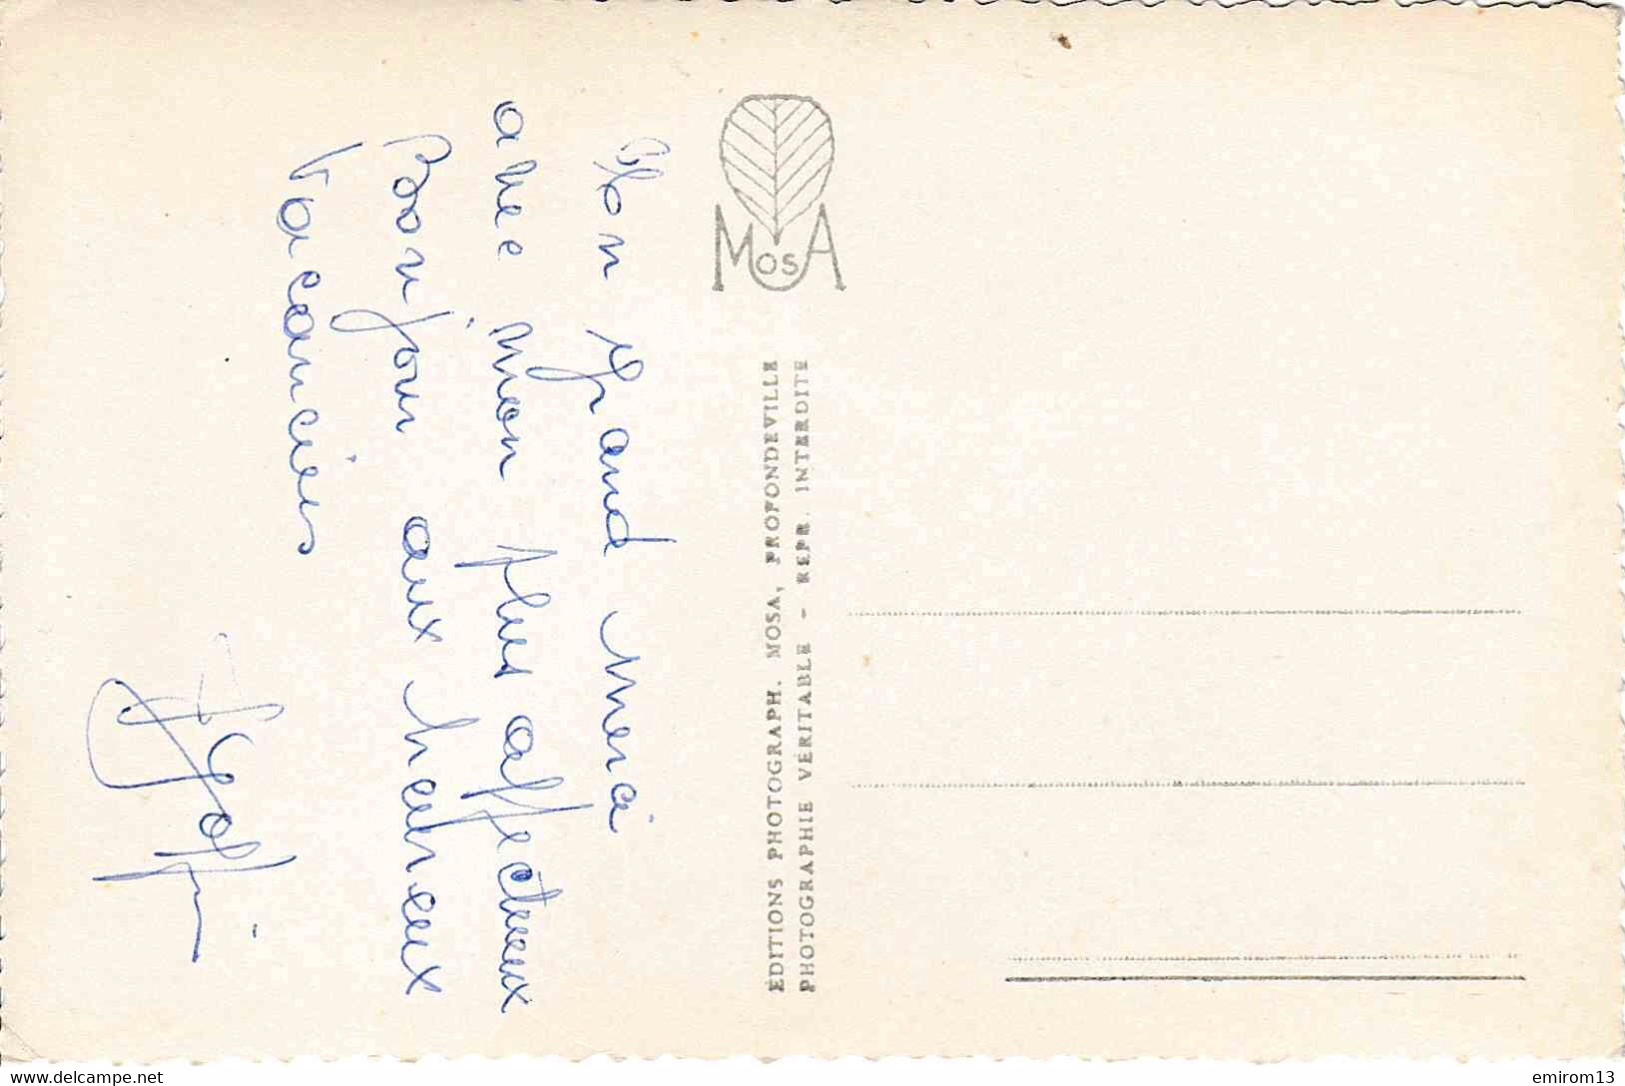 Mon grand merci
avec mon plus affectueux
Bonjour aux heureux
Vacanciers
MOSA
EDITIONS PHOTOGRAPH. MOSA, PROFONDEVILLE
PHOTOGRAPHIE VÉRITABLE - REPR. INTERDITE
www.delcampe.net
emirom13